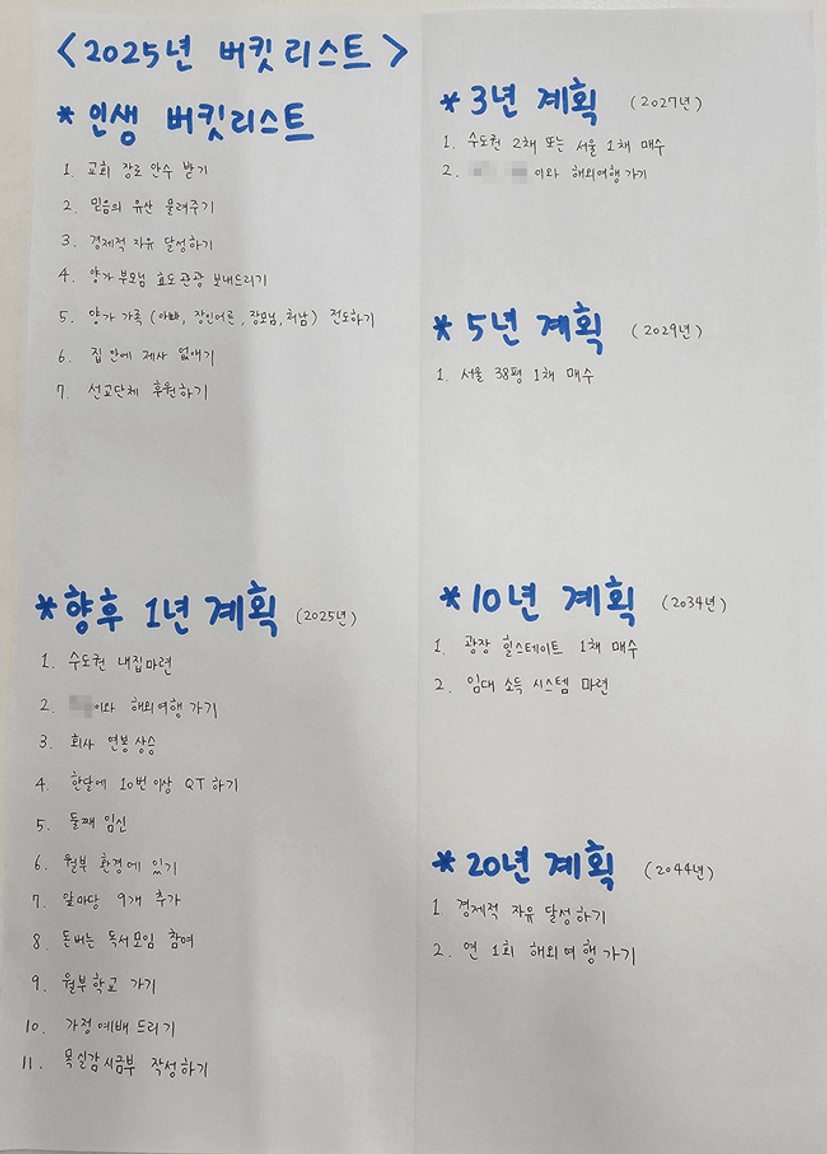 <2025년 버킷리스트>
* 인생 버킷리스트
1. 교회 장로 안수 받기
2. 믿음의 유산 물려주기
3. 경제적 자유 달성하기
4. 양가 부모님 효도관광 보내드리기
5. 양가 가족 (아빠, 장인어른, 장모님, 처남) 전도하기
6. 집안에 제사 없애기
7. 선교단체 후원하기
* 향후 1년 계획 (2025년)
1. 수도권 내집마련
2. 이와 해외여행 가기
3. 회사 연봉상승
4. 한달에 10번이상 QT 하기
5. 둘째 임신
6. 월부 환경에 있기
7. 앞마당 9개 추가
8. 돈버는 독서모임 참여
9. 월부학교 가기
10. 가정예배 드리기
11. 목실감시금부 작성하기
* 3년 계획 (2027년)
1. 수도권 2채 또는 서울 1채 매수
2. 이와 해외여행 가기
* 5년 계획 (2029년)
1. 서울 38평 1채 매수
* 10년 계획 (2034년)
1. 광장 힐스테이트 1채 매수
2. 임대 소득 시스템 마련
* 20년 계획 (2044년)
1. 경제적 자유 달성하기
2. 연 1회 해외여행가기